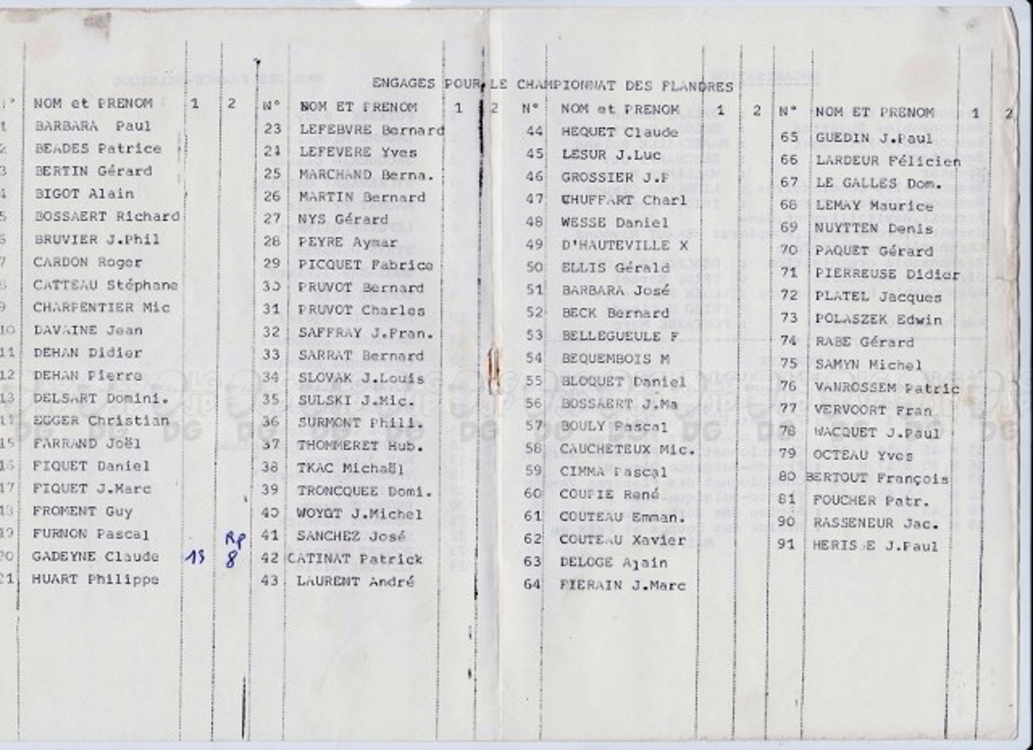 ENGAGES POUR LE CHAMPIONNAT DES FLANDRES
N° NOM et PRENOM 1 2
1 BARBARA Paul
2 BEADES Patrice
3 BERTIN Gérard
4 BIGOT Alain
5 BOSSAERT Richard
6 BRUVIER J.Phil
7 CARDON Roger
8 CATTEAU Stéphane
9 CHARPENTIER Mic
10 DAVAINE Jean
11 DEHAN Didier
12 DEHAN Pierre
13 DELSART Domini.
14 EGGER Christian
15 FARRAND Joël
16 FIQUET Daniel
17 FIQUET J.Marc
18 FROMENT Guy
19 FURNON Pascal Rp
20 GADEYNE Claude 13 8
21 HUART Philippe
N° NOM ET PRENOM 1 2
23 LEFEBVRE Bernard
24 LEFEVERE Yves
25 MARCHAND Berna.
26 MARTIN Bernard
27 NYS Gérard
28 PEYRE Aymar
29 PICQUET Fabrice
30 PRUVOT Bernard
31 PRUVOT Charles
32 SAFFRAY J.Fran.
33 SARRAT Bernard
34 SLOVAK J.Louis
35 SULSKI J.Mic.
36 SURMONT Phili.
37 THOMMERET Hub.
38 TKAC Michaël
39 TRONCQUEE Domi.
40 WOYQT J.Michel
41 SANCHEZ José
42 CATINAT Patrick
43 LAURENT André
N° NOM et PRENOM 1 2
44 HEQUET Claude
45 LESUR J.Luc
46 GROSSIER J.P
47 CHUFFART Charl
48 WESSE Daniel
49 D'HAUTEVILLE X
50 ELLIS Gérald
51 BARBARA José
52 BECK Bernard
53 BELLEGUEULE F
54 BEQUEMBOIS M
55 BLOQUET Daniel
56 BOSSAERT J.Ma
57 BOULY Pascal
58 CAUCHETEUX Mic.
59 CIMMA Pascal
60 COUPIE René
61 COUTEAU Emman.
62 COUTEAU Xavier
63 DELOGE Alain
64 FIERAIN J.Marc
N° NOM et PRENOM 1 2
65 GUEDIN J.Paul
66 LARDEUR Félicien
67 LE GALLES Dom.
68 LEMAY Maurice
69 NUYTTEN Denis
70 PAQUET Gérard
71 PIERREUSE Didier
72 PLATEL Jacques
73 POLASZEK Edwin
74 RABE Gérard
75 SAMYN Michel
76 VANROSSEM Patric
77 VERVOORT Fran
78 WACQUET J.Paul
79 OCTEAU Yves
80 BERTOUT François
81 FOUCHER Patr.
90 RASSENEUR Jac.
91 J.Paul